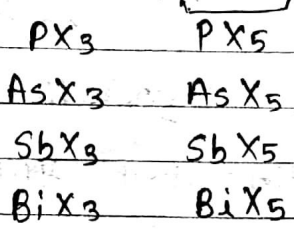 PX3 PX5
AsX3 AsX5
SbX3 SbX5
BiX3 BiX5